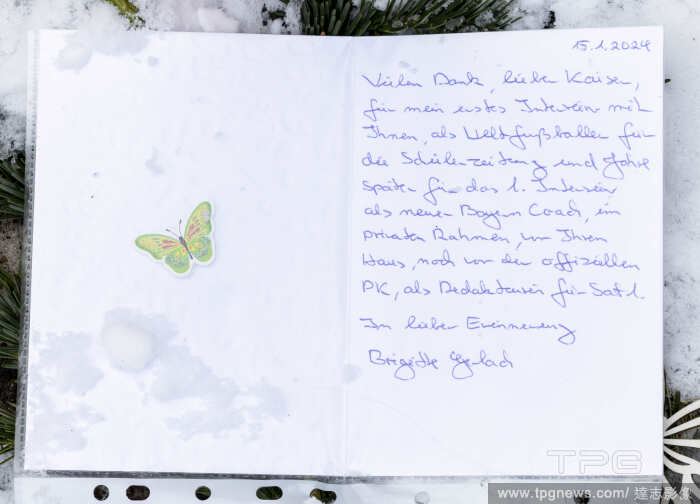 15.1.2024
Vielen Dank, lieber Kaiser,
für mein erstes Interview mit
Ihnen, als Weltfußballer für
die Schülerzeitung und Jahre
später für das 1. Interview
als neuer Bayern Coach, im
privaten Rahmen, vor Ihrem
Haus, noch vor der offiziellen
PK, als Redakteurin für Sat 1.
In lieber Erinnerung
Brigitte Gerlach
TPG
www.tpgnews.com/ 達志影像